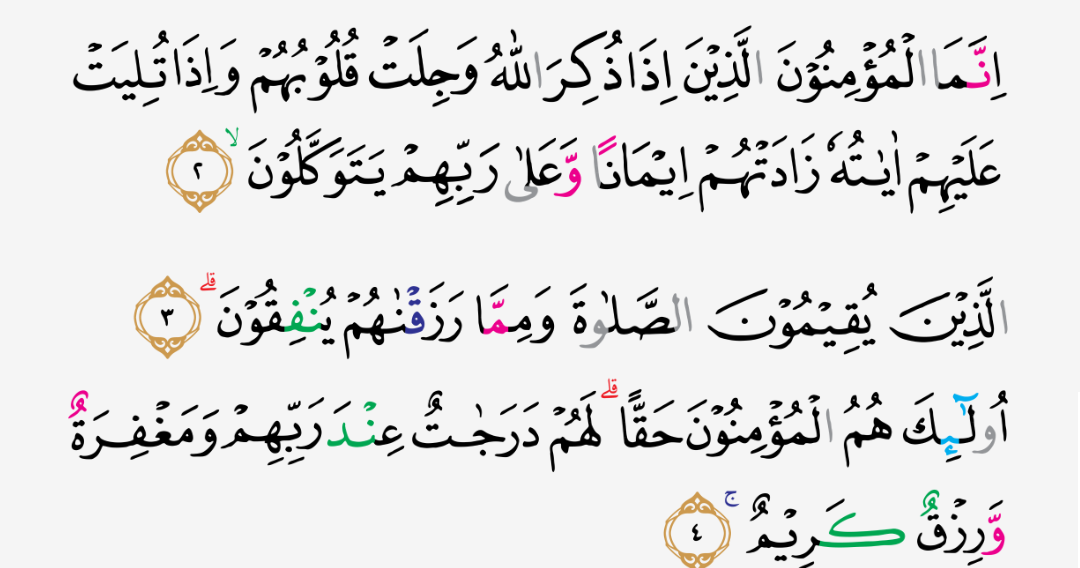 اِنَّمَا الْمُؤْمِنُوْنَ الَّذِيْنَ اِذَا ذُكِرَ اللّٰهُ وَجِلَتْ قُلُوْبُهُمْ وَاِذَا تُلِيَتْ
عَلَيْهِمْ اٰيٰتُهٗ زَادَتْهُمْ اِيْمَانًا وَّعَلٰى رَبِّهِمْ يَتَوَكَّلُوْنَ ۙ ٢
الَّذِيْنَ يُقِيْمُوْنَ الصَّلٰوةَ وَمِمَّا رَزَقْنٰهُمْ يُنْفِقُوْنَ ۗ ٣
اُولٰۤىِٕكَ هُمُ الْمُؤْمِنُوْنَ حَقًّا ۗ لَهُمْ دَرَجٰتٌ عِنْدَ رَبِّهِمْ وَمَغْفِرَةٌ
وَّرِزْقٌ كَرِيْمٌ ۚ ٤